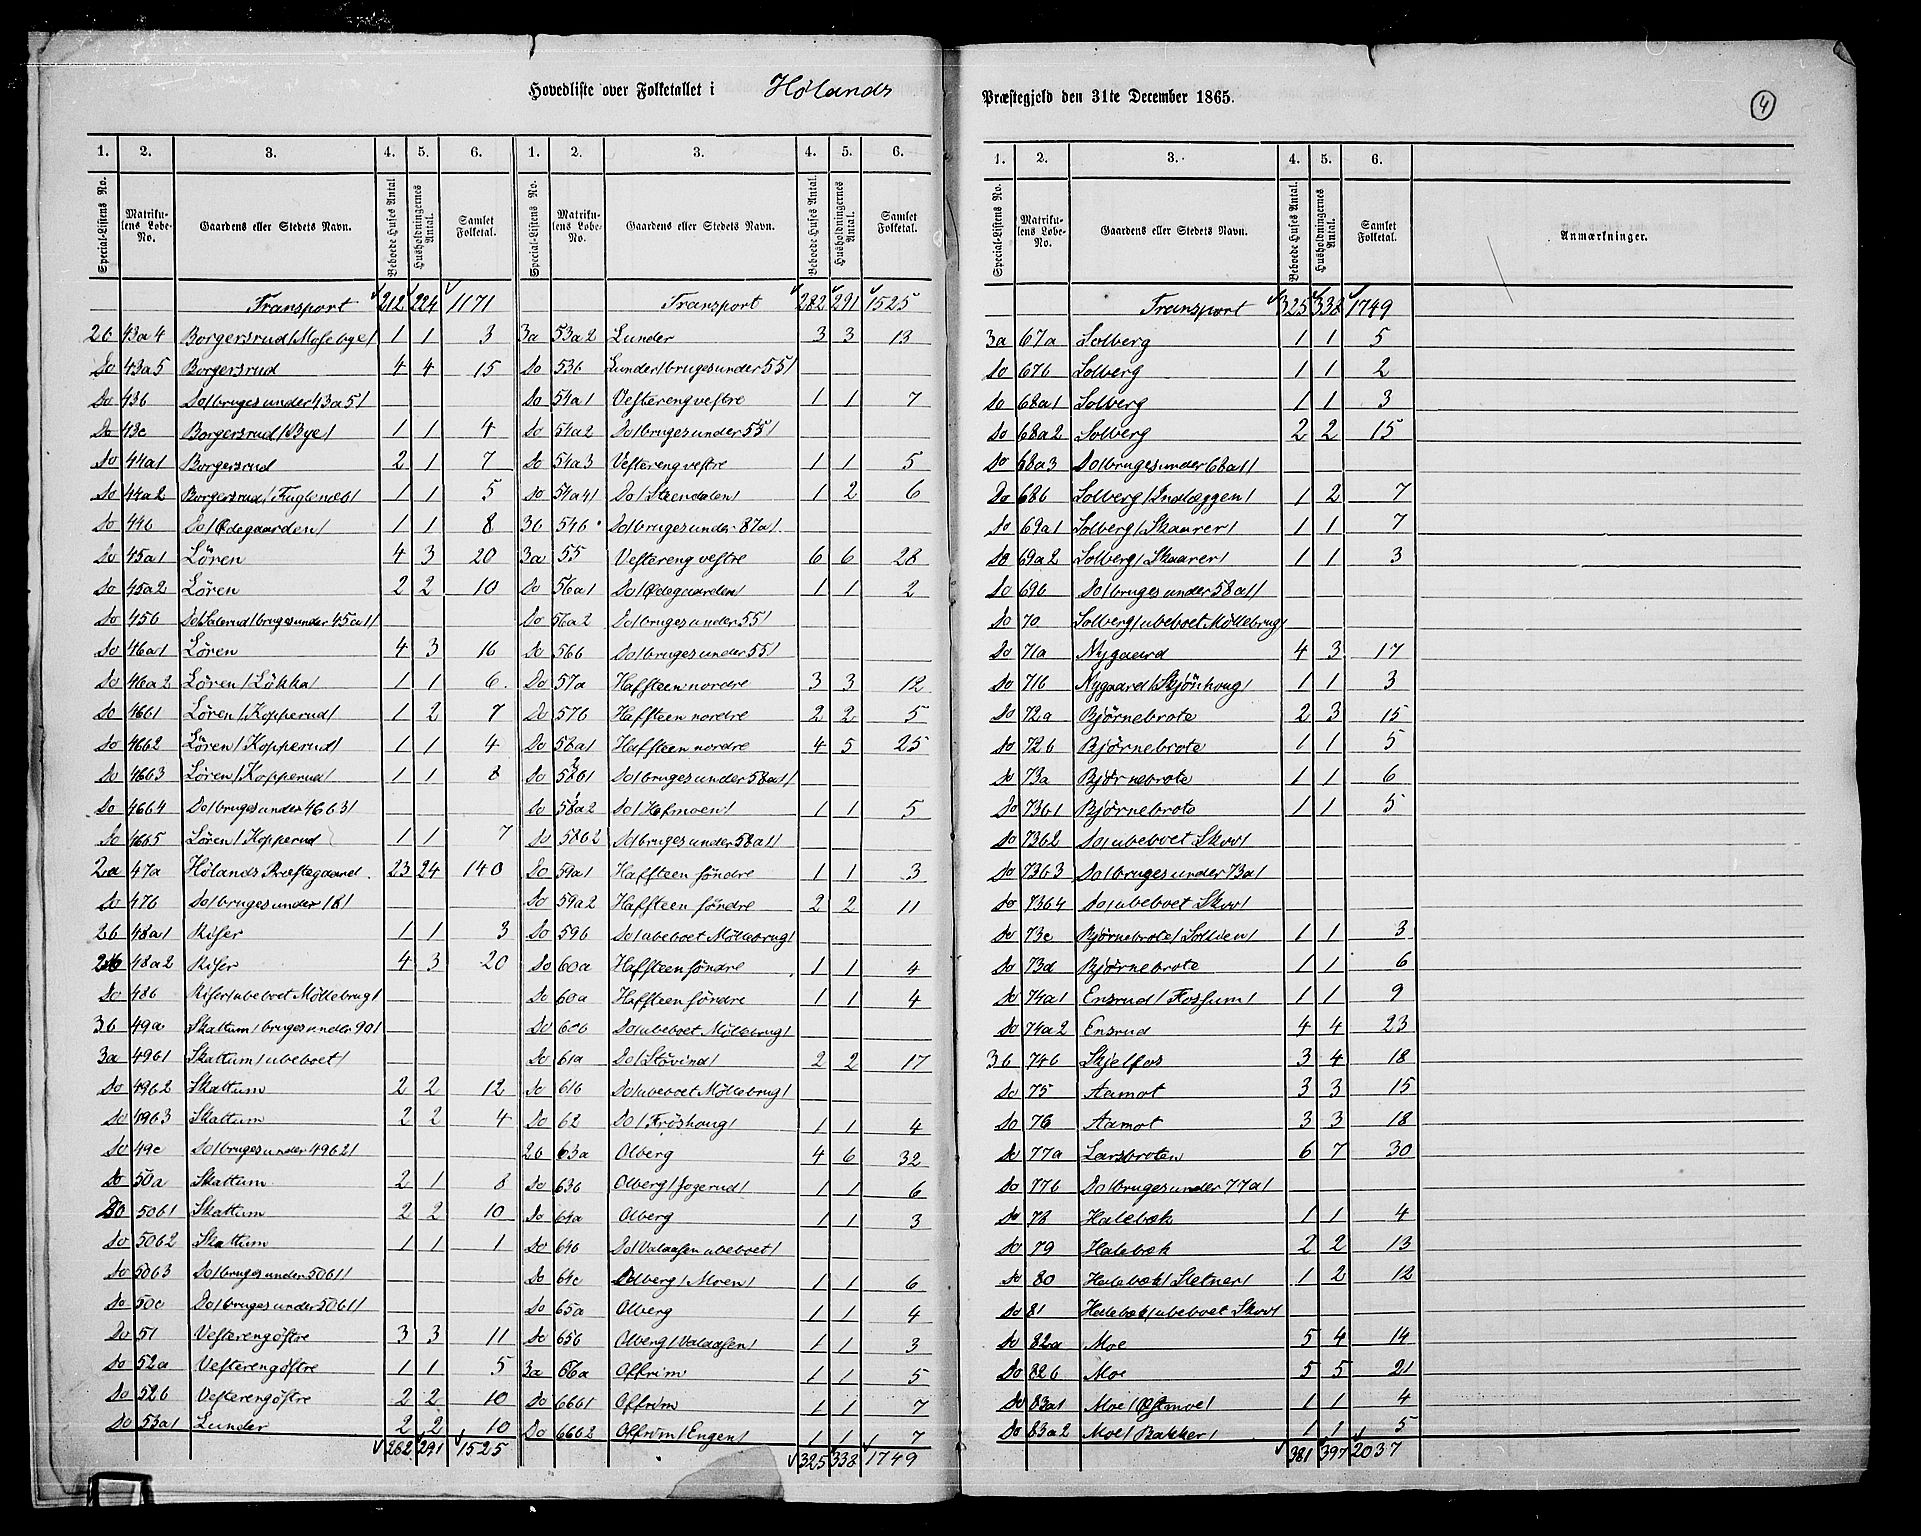 Hovedliste over Folketallet i Hølands
Præstegjeld den 31te December 1865.
4
1. 2. 3. 4. 5. 6. 1. 2. 3. 4. 5. 6.
Special-Listens No. Matrikulens Løbe-No. Gaardens eller Stedets Navn. Beboede Huses Antal. Husholdningernes Antal. Samlet Folketal. Special-Listens No. Matrikulens Løbe-No. Gaardens eller Stedets Navn. Beboede Huses Antal. Husholdningernes Antal. Samlet Folketal.
Transport 212 224 1171
2b 43a4 Borgersrud /Mosebye/ 1 1 3
Do 43a5 Borgersrud 4 4 15
Do 43b Do /bruges under 43a5/
Do 43c Borgersrud /Bye/ 1 1 4
Do 44a1 Borgersrud 2 1 7
Do 44a2 Borgersrud /Fugleneb/ 1 1 5
Do 44b Do /Ødegaarden/ 1 1 8
Do 45a1 Lören 4 3 20
Do 45a2 Lören 2 2 10
Do 45b Do /bruges under 45a1/
Do 46a1 Lören 4 3 16
Do 46a2 Lören /Lökka/ 1 1 6
Do 46b1 Lören /Kopperud/ 1 2 7
Do 46b2 Lören /Kopperud/ 1 1 4
Do 46b3 Lören /Kopperud/ 1 1 8
Do 46b4 Do /bruges under 46b3/
Do 46b5 Lören /Kopperud 1 1 7
2a 47a Hølands Præstegaard 23 24 140
Do 47b Do /bruges under 18/
2b 48a1 Riser 1 1 3
2b 48a2 Riser 4 3 20
Do 48b Riser /ubeboet Möllebrug/
3b 49a Skattum /bruges under 90/
3a 49b1 Skattum /ubeboet/
Do 49b2 Skattum 2 2 12
Do 49b3 Skattum 2 2 4
Do 49c Do /bruges under 49b2/
Do 50a Skattum 2 1 8
Do 50b1 Skattum 2 2 10
Do 50b2 Skattum 1 1 1
Do 50b3 Do /bruges under 50b1/
Do 50c Do /bruges under 50b1/
Do 51 Vestereng östre 3 3 11
Do 52a Vestereng östre 1 1 5
Do 52b Vestereng östre 2 2 10
Do 53a1 Lunder 2 2 10
262 291 1525
Transport 282 291 1525
3a 53a2 Lunder 3 3 13
Do 53b Lunder /bruges under 55/
Do 54a1 Vestereng vestre 1 1 7
Do 54a2 Do /bruges under 55/
Do 54a3 Vestereng vestre 1 1 5
Do 54a4 Do /Steendalen/ 1 2 6
3b 54b Do /bruges under 87a/
3a 55 Vestereng vestre 6 6 28
Do 56a1 Do /Ødegaarden/ 1 1 2
Do 56a2 Do /bruges under 55/
Do 56b Do /bruges under 55/
Do 57a Haffteen nordre 3 3 12
Do 57b Haffteen nordre 2 2 5
Do 58a1 Haffteen nordre 4 5 25
Do 58b1 Do /bruges under 58a1/
Do 58a2 Do /Hafmoen/ 1 1 5
Do 58b2 Do /bruges under 58a1/
Do 59a1 Haffteen söndre 1 1 3
Do 59a2 Haffteen söndre 2 2 11
Do 59b Do /ubeboet Möllebrug/
Do 60a Haffteen söndre 1 1 4
Do 60a Haffteen söndre 1 1 4
Do 60b Do /ubeboet Möllebrug/
Do 61a Do /Stövind/ 2 2 17
Do 61b Do /ubeboet Möllebrug/
Do 62 Do /Fröshoug/ 1 1 4
2b 63a Olberg 4 6 32
Do 63b Olberg /Jogerud/ 1 1 6
Do 64a Olberg 1 1 3
Do 64b Do /Valaasen ubeboet/
Do 64c Olberg /Moen/ 1 1 6
Do 65a Olberg 1 1 4
Do 65b Olberg /Valaasen/ 1 1 3
3a 66a Offrim 1 1 5
Do 66b1 Offrim 1 1 7
Do 66b2 Offrim /Engen/ 1 1 7
325 338 1749
1. 2. 3. 4. 5. 6.
Special-Listens No. Matrikulens Løbe-No. Gaardens eller Stedets Navn. Beboede Huses Antal. Husholdningernes Antal. Samlet Folketal. Anmærkninger.
Transport 325 338 1749
3a 67a Solberg 1 1 5
Do 67b Solberg 1 1 2
Do 68a1 Solberg 1 1 3
Do 68a2 Solberg 2 2 15
Do 68a3 Do /bruges under 68a1/
Do 68b Solberg /Indlæggen/ 1 2 7
Do 69a1 Solberg /Skaarer/ 1 1 7
Do 69a2 Solberg /Skaarer/ 1 1 3
Do 69b Do /bruges under 58a1/
Do 70 Solberg /ubeboet Möllebrug/
Do 71a Nygaard 4 3 17
Do 71b Nygaard /Skjönhoug/ 1 1 3
Do 72a Bjørnebrote 2 3 15
Do 72b Bjørnebrote 1 1 5
Do 73a Bjørnebrote 1 1 6
Do 73b1 Bjørnebrote 1 1 5
Do 73b2 Do /ubeboet Skov/
Do 73b3 Do /bruges under 73a/
Do 73b4 Do /ubeboet Skov/
Do 73c Bjørnebrote /Sollien/ 1 1 3
Do 73d Bjørnebrote 1 1 6
Do 74a1 Ensrud /Fossum/ 1 1 9
Do 74a2 Ensrud 4 4 23
3b 74b Skjelfos 3 4 18
Do 75 Aamot 3 3 15
Do 76 Aamot 3 3 18
Do 77a Larsbroten 6 7 30
Do 77b Do /bruges under 77a/
Do 78 Halebæk 1 1 4
Do 79 Halebæk 2 2 13
Do 80 Halebæk /Sletner/ 1 2 12
Do 81 Halebæk /ubeboet Skov/
Do 82a Moe 5 4 14
Do 82b Moe 5 5 21
Do 83a1 Moe /Østmoe/ 1 1 4
Do 83a2 Moe /Bakker/ 1 1 5
381 397 2037